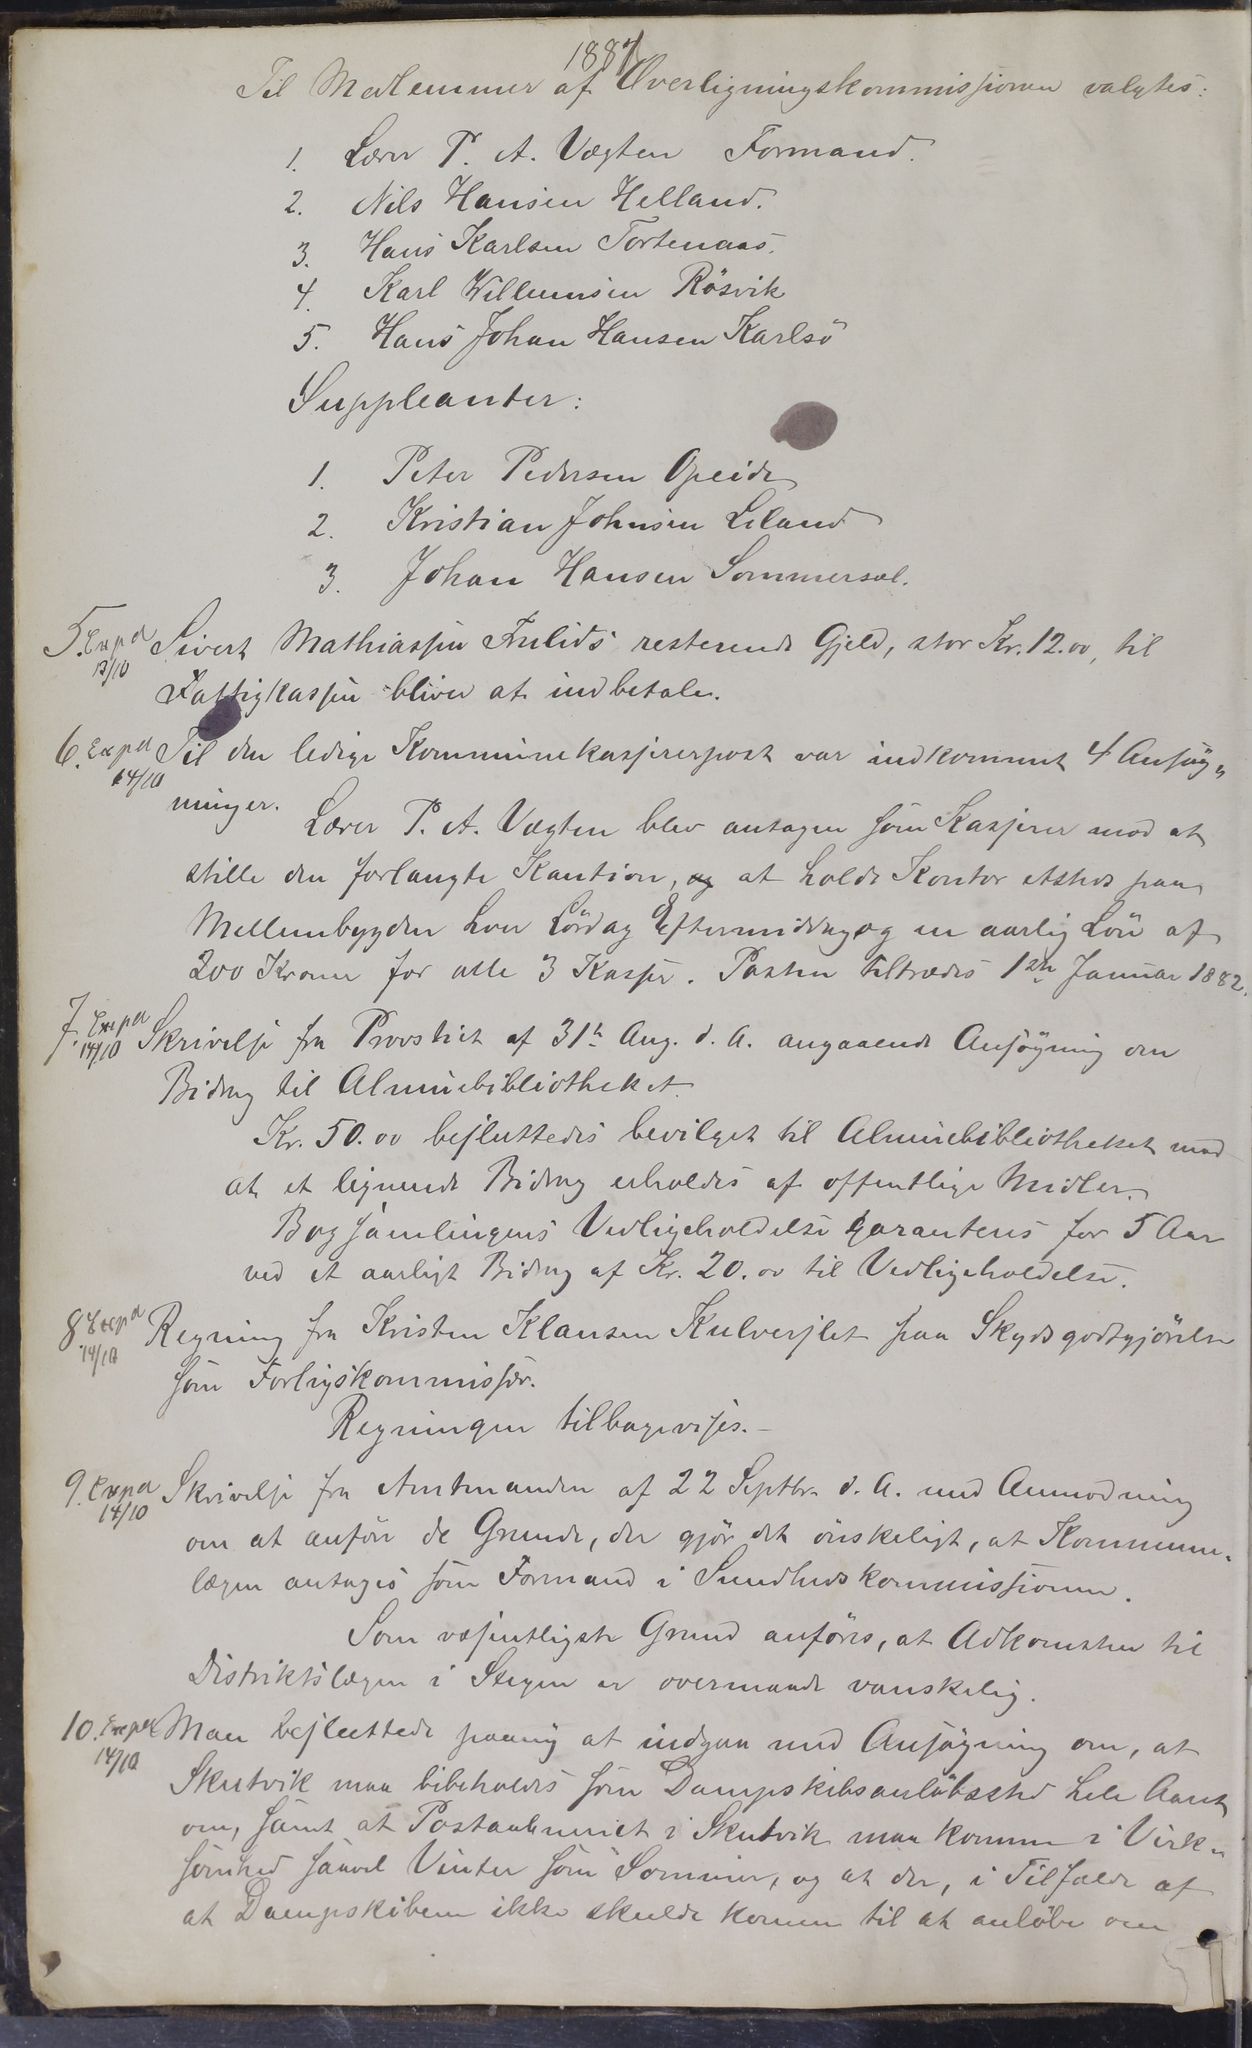 1881
Til Medlemmer af Overligningskommissionen valgtes:
1. Lærer P. A. Vægten Formand.
2. Nils Hansen Helland.
3. Hans Karlsen Tortenaas.
4. Karl Willumsen Rösvik
5. Hans Johan Hansen Karlsö
Suppleanter:
1. Peter Pedersen Opeide
2. Kristian Johnsen Leland
3. Johan Hansen Sommersæl.
5. Expd 13/10 Sivert Mathiassen resterende Gjeld, stor Kr. 12.00, til
Fattigkassen bliver at indbetale.
6. Expd 14/10 Til den ledige Kommunekasserерpost var indkommet 4 Ansøg-
ninger.
Lærer P. A. Vægten blev antagen som Kasserer mod at
stille den forlangte Kaution, og at holde Kontor etsteds paa
Mellembygden hver Lördag Eftermiddag og en aarlig Lön af
200 Kroner for alle 3 Kasser. Posten tiltrædes 1ste Januar 1882.
7. Expd 14/10 Skrivelse fra Provstiet af 31te Aug. d. A. angaaende Ansögning om
Bidrag til Almuebibliotheket.
Kr. 50.00 besluttedes bevilget til Almuebibliotheket mod
at et lignende Bidrag erholdes af offentlige Midler.
Bogsamlingens Vedligeholdelse garanteres for 5 Aar
ved et aarligt Bidrag af Kr. 20.00 til Vedligeholdelse.
8 Expd 14/10 Regning fra Kristen Klausen Kulverslet paa Skydsgodtgjörelse
som Forligskommissær.
Regningen tilbagevises.-
9. Expd 14/10 Skrivelse fra Amtmanden af 22 Septbr. d. A. med Anmodning
om at anföre de Grunde, der gjör det önskeligt, at Kommune-
lægen antages som Formand i Sundhedskommissionen.
Som væsentligste Grund anföres, at Adkomsten til
Distriktslægen i Steigen er overmaade vanskelig.
10. Expd 14/10 Man besluttede paany at indgaa med Ansögning om, at
Skutvik maa bibeholdes som Dampskibsanlöbssted hele Aaret
om, samt at Postaabneriet i Skutvik maa komme i Virk-
somhed saavel Vinter som Sommer, og at der, i Tilfælde af
at Dampskibene ikke skulde komme til at anlöbe om